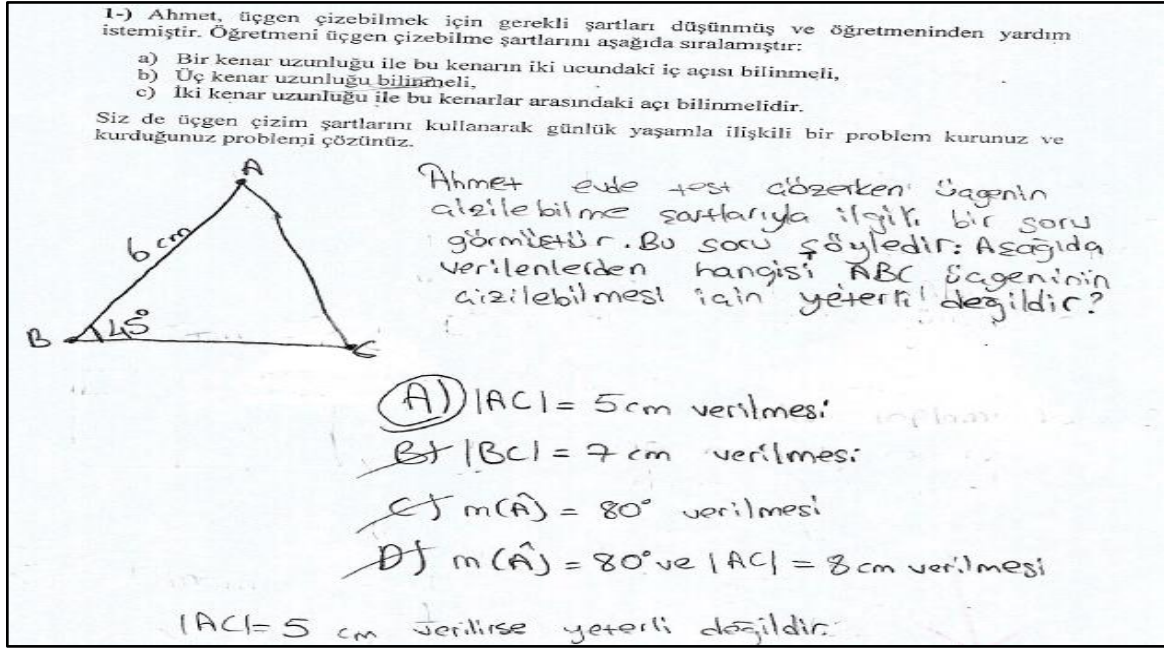 1-) Ahmet, üçgen çizebilmek için gerekli şartları düşünmüş ve öğretmeninden yardım
istemiştir. Öğretmeni üçgen çizebilme şartlarını aşağıda sıralamıştır:
a) Bir kenar uzunluğu ile bu kenarın iki ucundaki iç açısı bilinmeli,
b) Üç kenar uzunluğu bilinmeli,
c) İki kenar uzunluğu ile bu kenarlar arasındaki açı bilinmelidir.
Siz de üçgen çizim şartlarını kullanarak günlük yaşamla ilişkili bir problem kurunuz ve
kurduğunuz problemi çözünüz.
A
6 cm
45°
B
C
Ahmet evde test çözerken üçgenin
çizilebilme şartlarıyla ilgili bir soru
görmüştür. Bu soru şöyledir: Aşağıda
verilenlerden hangisi ABC üçgeninin
çizilebilmesi için yeterli değildir?
A) |AC| = 5 cm verilmesi
B) |BC| = 7 cm verilmesi
C) m(Â) = 80° verilmesi
D) m(Â) = 80° ve |AC| = 8 cm verilmesi
|AC|= 5 cm verilirse yeterli değildir.